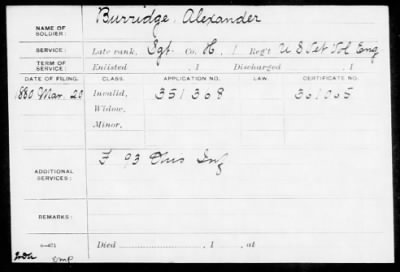 NAME OF SOLDIER: Burridge, Alexander
SERVICE: Late rank, Sgt. Co. H, 1 Reg't U S Vet Vol Eng
TERM OF SERVICE: Enlisted , 1 Discharged , 1
DATE OF FILING. CLASS. APPLICATION NO. LAW. CERTIFICATE NO.
1880 Mar. 20 Invalid, 351308 361065
Widow,
Minor,
ADDITIONAL SERVICES: F 93 Ohio Inf
REMARKS:
Died , 1 , at